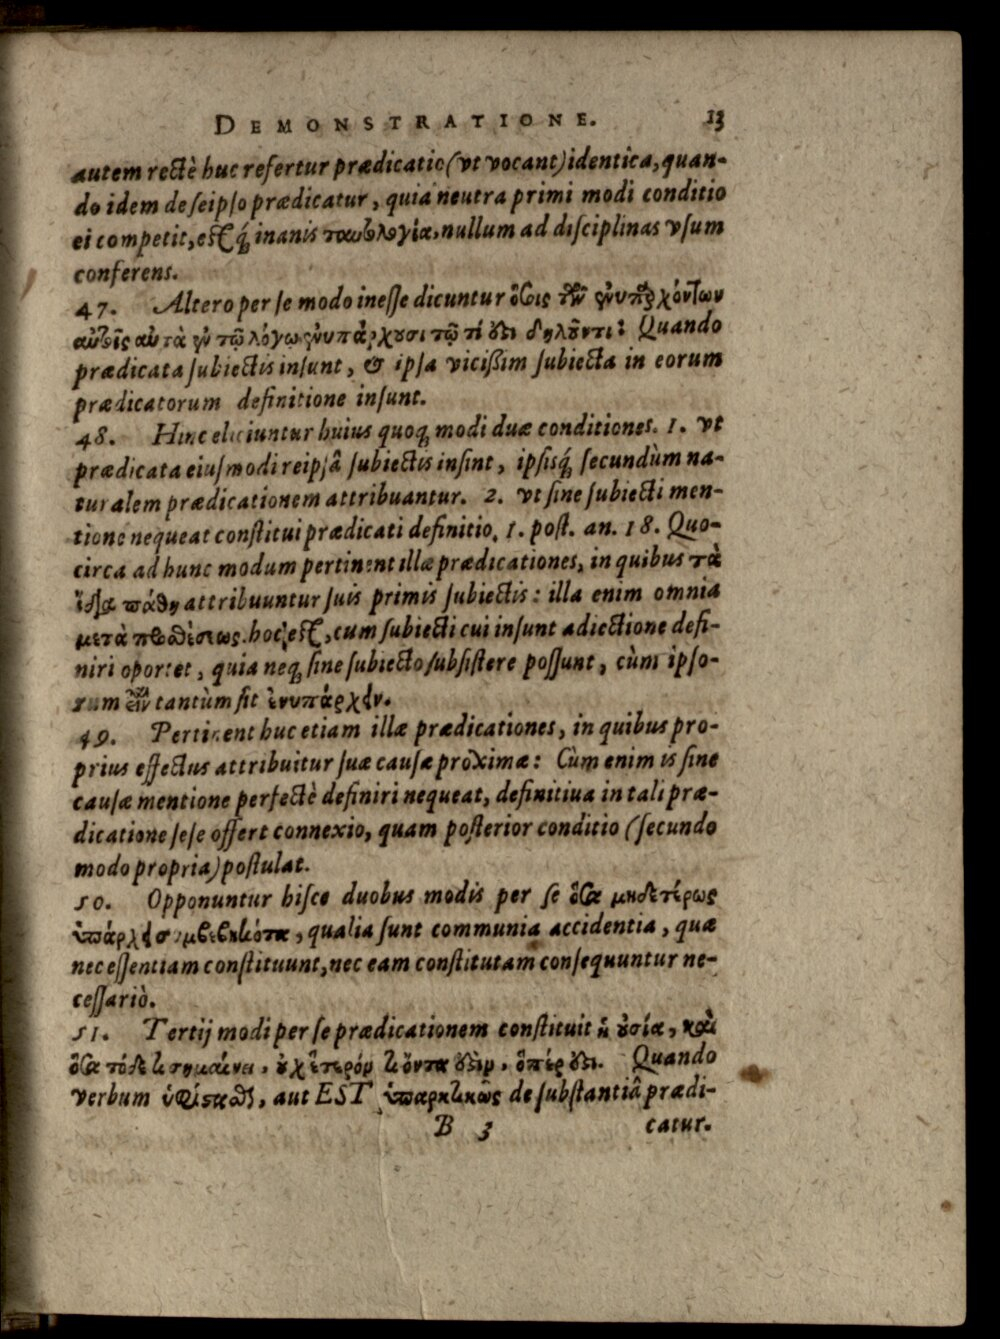 DEMONSTRATIONE. 13
autem rectè huc refertur prædicatio (vt vocant) identica, quan-
do idem de seipso prædicatur, quia neutra primi modi conditio
ei competit, estq́; inanis ταυτολογία, nullum ad disciplinas vsum
conferens.
47. Altero per se modo inesse dicuntur ὅσοις τῶν ἐνυπαρχόντων
αὐτοῖς αὐτὰ ἐν τῷ λόγῳ ἐνυπάρχουσι τῷ τί ἐστι δηλοῦντι: Quando
prædicata subiectis insunt, & ipsa vicißim subiecta in eorum
prædicatorum definitione insunt.
48. Hinc eliciuntur huius quoq; modi duæ conditiones. 1. vt
prædicata eiusmodi reipsâ subiectis insint, ipsisq́; secundùm na-
turalem prædicationem attribuantur. 2. vt sine subiecti men-
tione nequeat constitui prædicati definitio. 1. post. an. 18. Quo-
circa ad hunc modum pertinent illæ prædicationes, in quibus τὰ
ἴδια πάθη attribuuntur suis primis subiectis: illa enim omnia
μετὰ προσθέσεως. hoc est, cum subiecti cui insunt adiectione defi-
niri oportet, quia neq; sine subiecto subsistere possunt, cùm ipso-
rum εἶναι tantùm sit ἐνυπάρχειν.
49. Pertinent huc etiam illæ prædicationes, in quibus pro-
prius effectus attribuitur suæ causæ proximæ: Cùm enim is sine
causæ mentione perfectè definiri nequeat, definitiua in tali præ-
dicatione sese offert connexio, quam posterior conditio (secundo
modo propria) postulat.
50. Opponuntur hisce duobus modis per se ὅσα μηδετέρως
ὑπάρχει συμβεβηκότα, qualia sunt communia accidentia, quæ
nec essentiam constituunt, nec eam constitutam consequuntur ne-
cessariò.
51. Tertij modi per se prædicationem constituit ἡ οὐσία, καὶ
ὅσα τόδε τι σημαίνει, οὐχ ἕτερόν τι ὄντα ἐστὶν, ὅπερ ἐστι. Quando
verbum ὑφίσταθαι, aut EST ὑπαρκτικῶς de substantiâ prædi-
B 3 catur.